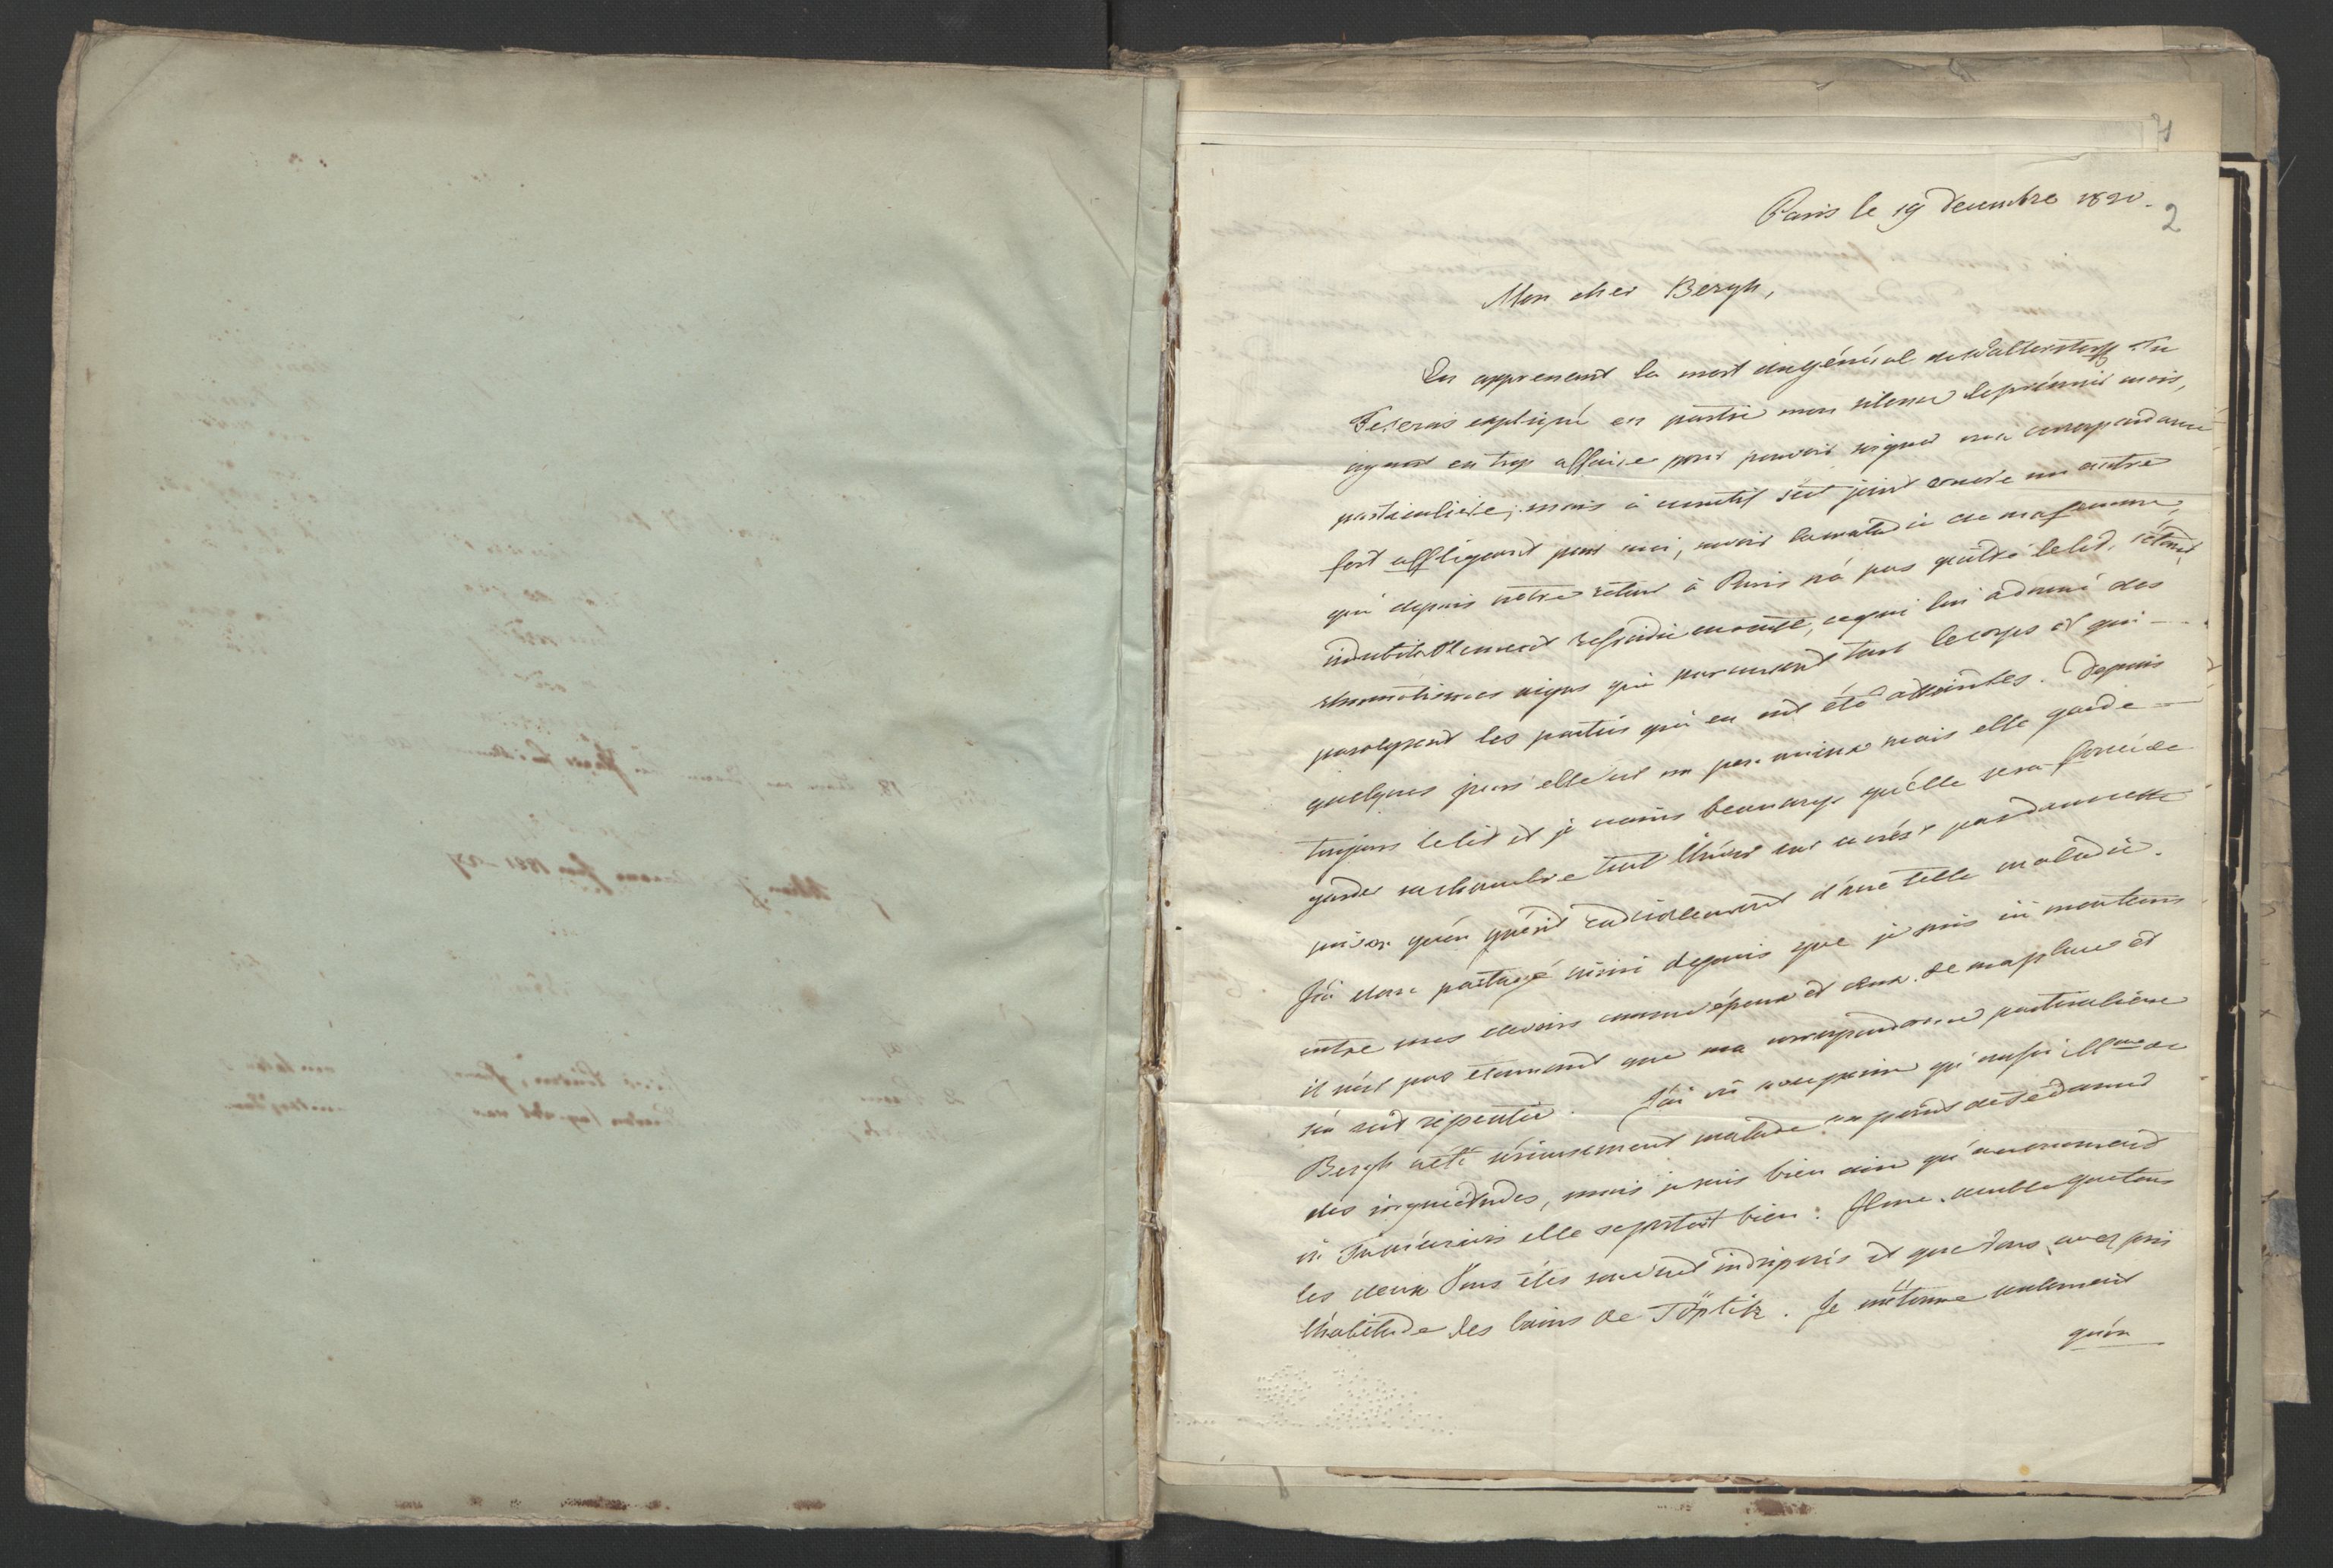 2
Paris le 19 decembre 1820.
Mon cher Bergh,
En apprenant la mort du général de Walterstorff Tu
Te seras expliqué en partie mon silence le prémier mois,
ayant eu trop affaire pour pouvoir soigner ma correspondance
particulière; mais à ce motif s'est joint encore un autre
fort affligeant pour moi, savoir la maladie de ma femme,
qui depuis notre retour à Paris n'a pas quitté le lit, s'étant
indubitablement refroidie en route, ce qui lui a donné des
rhumatismes aigus qui parcourent tout le corps et qui
paralysent les parties qui en ont été atteintes. Depuis
quelques jours elle est un peu mieux mais elle garde
toujours le lit et je crains beaucoup qu'elle sera forcée de
garder sa chambre tout l'hiver car ce n'est pas dans cette
saison qu'on guérit radicalement d'une telle maladie.
J'ai donc partagé ainsi depuis que je suis ici mon tems
entre mes devoirs comme époux et ceux de ma place et
il n'est pas étonnant que ma correspondance particulière
s'en soit ressentie. J'ai vû avec peine qu'aussi Mme de
Bergh a été sérieusement malade au point de Te donner
des inquiétudes, mais je suis bien aise qu'au moment
où Tu m'écrivis elle se portoit bien. Il me semble que tous
les deux Vous êtes souvent indisposés et que Vous avez pris
l'habitude des bains de Töplitz. Je m'étonne seulement
qu'on